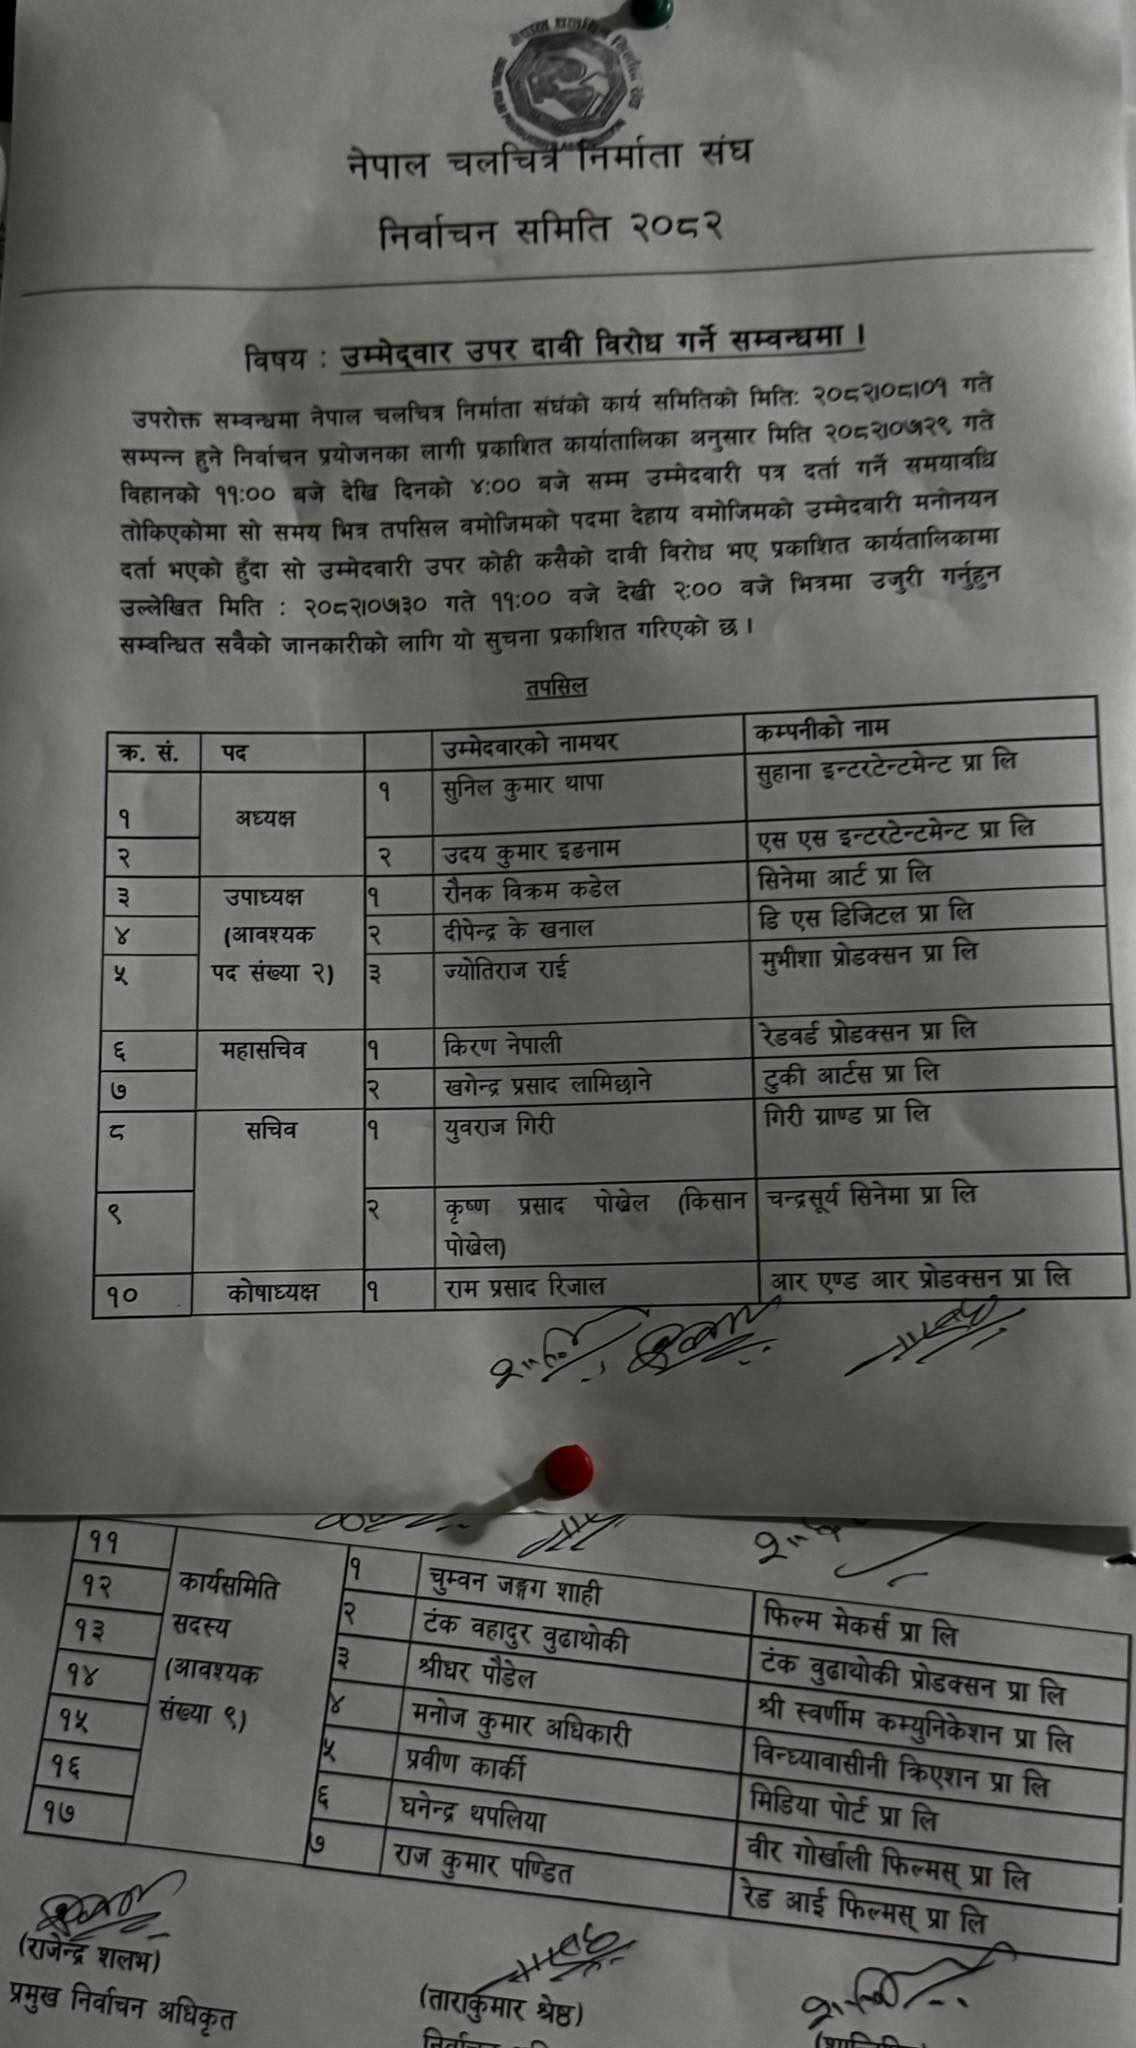 नेपाल चलचित्र निर्माता संघ
निर्वाचन समिति २०८२
विषय : उम्मेद्वार उपर दावी विरोध गर्ने सम्वन्धमा ।
उपरोक्त सम्वन्धमा नेपाल चलचित्र निर्माता संघंको कार्य समितिको मितिः २०८२।०८।०१ गते
सम्पन्न हुने निर्वाचन प्रयोजनका लागी प्रकाशित कार्यातालिका अनुसार मिति २०८२।०७।२९ गते
विहानको ११:०० बजे देखि दिनको ४:०० बजे सम्म उम्मेदवारी पत्र दर्ता गर्ने समयावधि
तोकिएकोमा सो समय भित्र तपसिल वमोजिमको पदमा देहाय वमोजिमको उम्मेदवारी मनोनयन
दर्ता भएको हुँदा सो उम्मेदवारी उपर कोही कसैको दावी विरोध भए प्रकाशित कार्यतालिकामा
उल्लेखित मिति : २०८२।०७।३० गते ११:०० वजे देखी २:०० वजे भित्रमा उजुरी गर्नुहुन
सम्वन्धित सवैको जानकारीको लागि यो सुचना प्रकाशित गरिएको छ ।
तपसिल
क्र. सं. पद उम्मेदवारको नामथर कम्पनीको नाम
१ अध्यक्ष १ सुनिल कुमार थापा सुहाना इन्टरटेन्टमेन्ट प्रा लि
२ २ उदय कुमार इङनाम एस एस इन्टरटेन्टमेन्ट प्रा लि
३ उपाध्यक्ष १ रौनक विक्रम कडेल सिनेमा आर्ट प्रा लि
४ (आवश्यक २ दीपेन्द्र के खनाल डि एस डिजिटल प्रा लि
५ पद संख्या २) ३ ज्योतिराज राई मुभीशा प्रोडक्सन प्रा लि
६ महासचिव १ किरण नेपाली रेडवर्ड प्रोडक्सन प्रा लि
७ २ खगेन्द्र प्रसाद लामिछाने टुकी आर्टस प्रा लि
८ सचिव १ युवराज गिरी गिरी ग्राण्ड प्रा लि
९ २ कृष्ण प्रसाद पोखेल (किसान चन्द्रसूर्य सिनेमा प्रा लि
पोखेल)
१० कोषाध्यक्ष १ राम प्रसाद रिजाल आर एण्ड आर प्रोडक्सन प्रा लि
११ १ चुम्वन जङ्गग शाही फिल्म मेकर्स प्रा लि
१२ कार्यसमिति २ टंक वहादुर वुढाथोकी टंक वुढाथोकी प्रोडक्सन प्रा लि
१३ सदस्य ३ श्रीधर पौडेल श्री स्वर्णीम कम्युनिकेशन प्रा लि
१४ (आवश्यक ४ मनोज कुमार अधिकारी विन्ध्यावासीनी क्रिएशन प्रा लि
१५ संख्या ९) ५ प्रवीण कार्की मिडिया पोर्ट प्रा लि
१६ ६ घनेन्द्र थपलिया वीर गोर्खाली फिल्मस् प्रा लि
१७ ७ राज कुमार पण्डित रेड आई फिल्मस् प्रा लि
(राजेन्द्र शलभ) (ताराकुमार श्रेष्ठ)
प्रमुख निर्वाचन अधिकृत